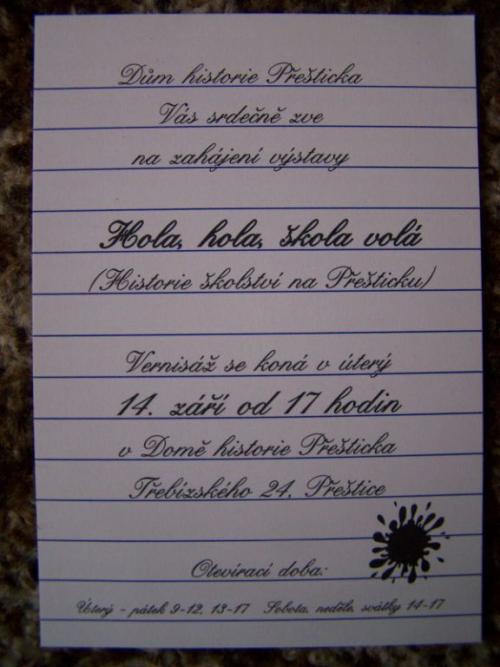 Dům historie Přešticka
Vás srdečně zve
na zahájení výstavy
Hola, hola, škola volá
(Historie školství na Přešticku)
Vernisáž se koná v úterý
14. září od 17 hodin
v Domě historie Přešticka
Třebízského 24, Přeštice
Otevírací doba:
Úterý - pátek 9-12, 13-17 Sobota, neděle, svátky 14-17